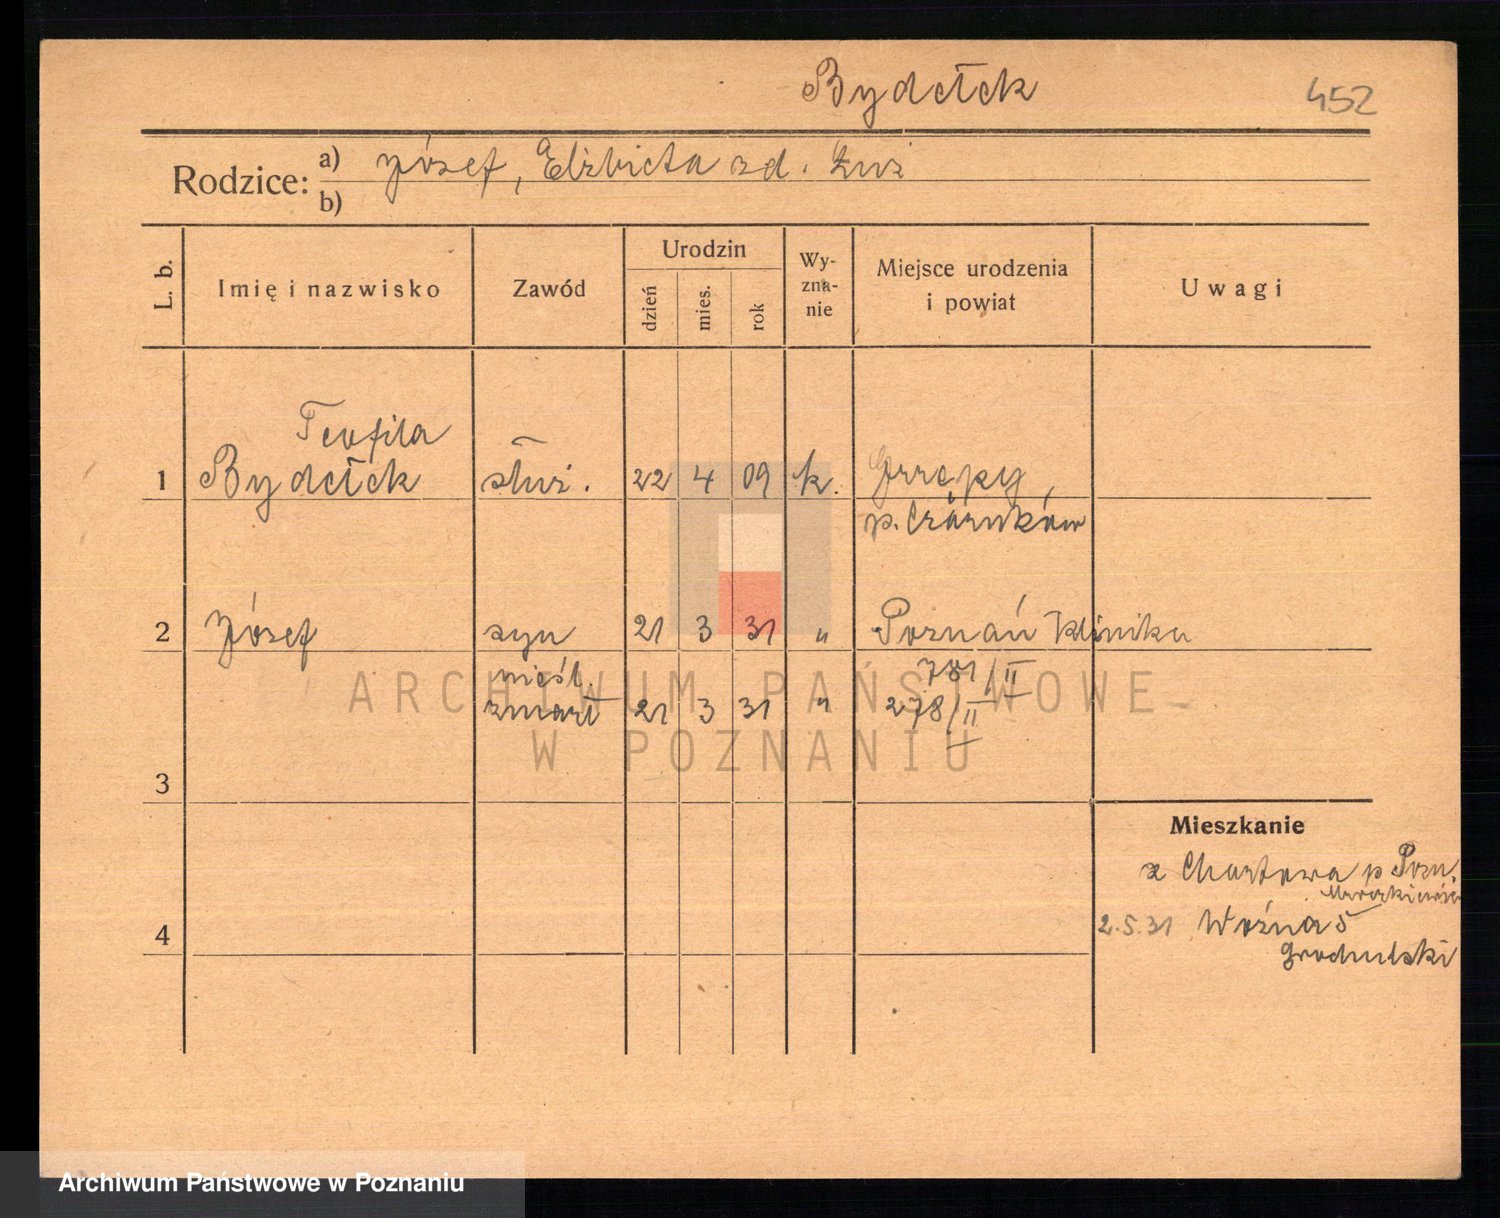 Bydełek
452
Rodzice: a) Józef, Elżbieta zd. Żuż
b)
L. b. Imię i nazwisko Zawód Urodzin dzień mies. rok Wyznanie Miejsce urodzenia i powiat Uwagi
Teofila
1 Bydełek służ. 22 4 09 k.
p. Czarnków
2 Józef syn 21 3 31 " Poznań Klinika
nieśl. 781/II
zmarł 21 3 31 " 278/II
ARCHIWUM PAŃSTWOWE
W POZNANIU
3
Mieszkanie
z Chartowa p Pozn.
4 2.5.31 Woźna 5
Grodzulski
Archiwum Państwowe w Poznaniu